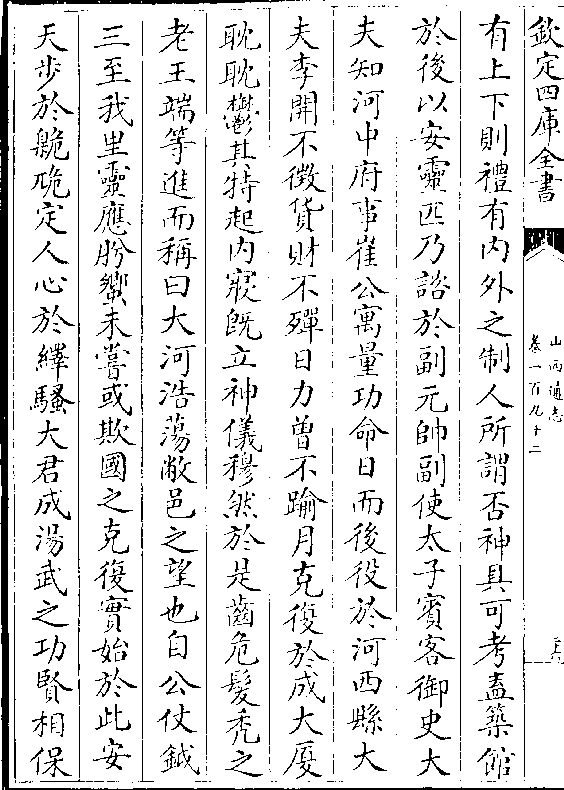 欽定四庫全書
山西通志
卷一百九十二
有上下則禮有內外之制人所謂否神具可考葢築館
於後以安靈匹乃諮於副元帥副使太子賓客御史大
夫知河中府事崔公寓量功命日而後役於河西縣大
夫李開不徵貨財不殫日力曾不踰月克復於成大厦
耽耽鬱其特起內寢旣立神儀穆然於是齒危髮禿之
老王端等進而稱曰大河浩蕩敝邑之望也自公仗鉞
三至我里靈應肹蠁未嘗或欺國之克復實始於此安
天步於臲卼定人心於繹騷大君成湯武之功賢相保